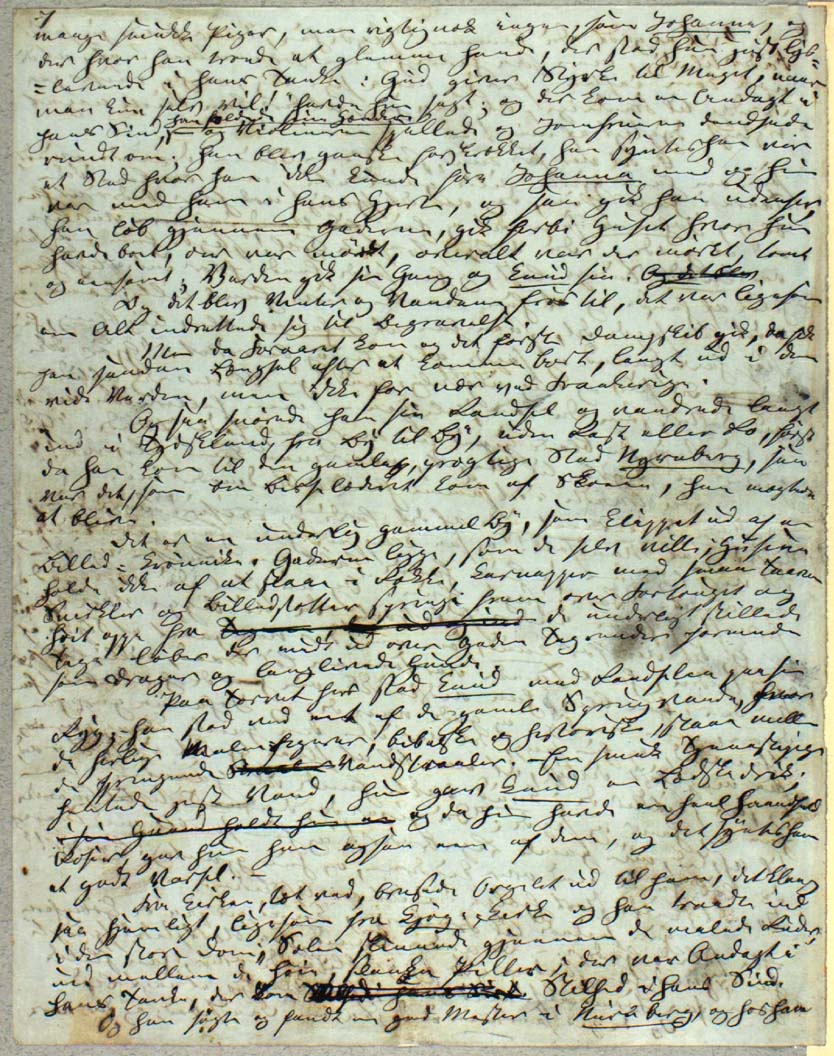 mange smukke Piger, men rigtignok ingen, som Johanne, og
der hvor han troede at glemme hende, der stod hun just lys=
=levende i hans Tanke: Gud giver Styrke til Meget, naar
man kun selv vil! havde hun sagt; og der kom en Andagt i
hans Sind, han foldede sine Hænder og Violinerne spillede og Jomfruerne dandsede
rundt om; han blev ganske forskrækket, han syntes han var
et Sted hvor han ikke kunde føre Johanne med og hun
var med ham i hans Hjerte, og saa gik han udenfor,
han løb gjennem Gaderne, gik forbi Huset hvor hun
havde boet, der var mørkt, overalt var der mørkt, tomt
og eensomt; Verden gik sin Gang og Knud sin. Og det blev
Og det blev Vinter og Vandene frøs til, det var ligesom
om Alt indrettede sig til Begravelse.
Men da Foraaret kom og det første Dampskib gik, da fik
han saadan Længsel efter at komme bort, langt ud i den
vide Verden, men ikke for nær ved Frankerige.
Og saa snørede han sin Randsel og vandrede langt
ind i Tydskland, fra By til By, uden Rast eller Ro, først
da han kom til den gamle, prægtige Stad Nyrnberg, saa
var det, som om Bisselæderet kom af Skoene, han mægtede
at blive.
Det er en underlig gammel By, som klippet ud af en
Billed=Krønnike. Gaderne ligge, som de selv ville, Husene
holde ikke af at staae i Række, Karnapper med smaa Taarne
Snirkler og Billedstøtter springe frem over Fortouget og
høit oppe fra de underligt stillede
Tage løber der midt ud over Gaden Tagrender formede
som Drager og langlivede Hunde.
Paa Torvet her stod Knud med Randselen paa sin
Ryg; han stod ved et af de gamle Springvande, hvor
de herlige Malmfigurer, bibelske og historiske, staae mellem
de springende Vandstraaler. En smuk Tjenestepige
hentede just Vand, hun gav Knud en Lædskedrik;
i sin Haand holdt hun en og da hun havde en heel Haandfuld
Roser, gav hun ham ogsaa een af dem, og det syntes ham
et godt Varsel. –
Fra Kirken, tæt ved, brusede Orgelet ud til ham, det klang
saa hjemligt, ligesom fra Kjøge Kirke og han traadte ind
i den store Dom; Solen skinnede gjennem de malede Ruder,
ind mellem de høie, slanke Piller, der var Andagt i
hans Tanke, der kom Stilhed i hans Sind.
Og han søgte og fandt en god Mester i Nürnberg, og hos ham